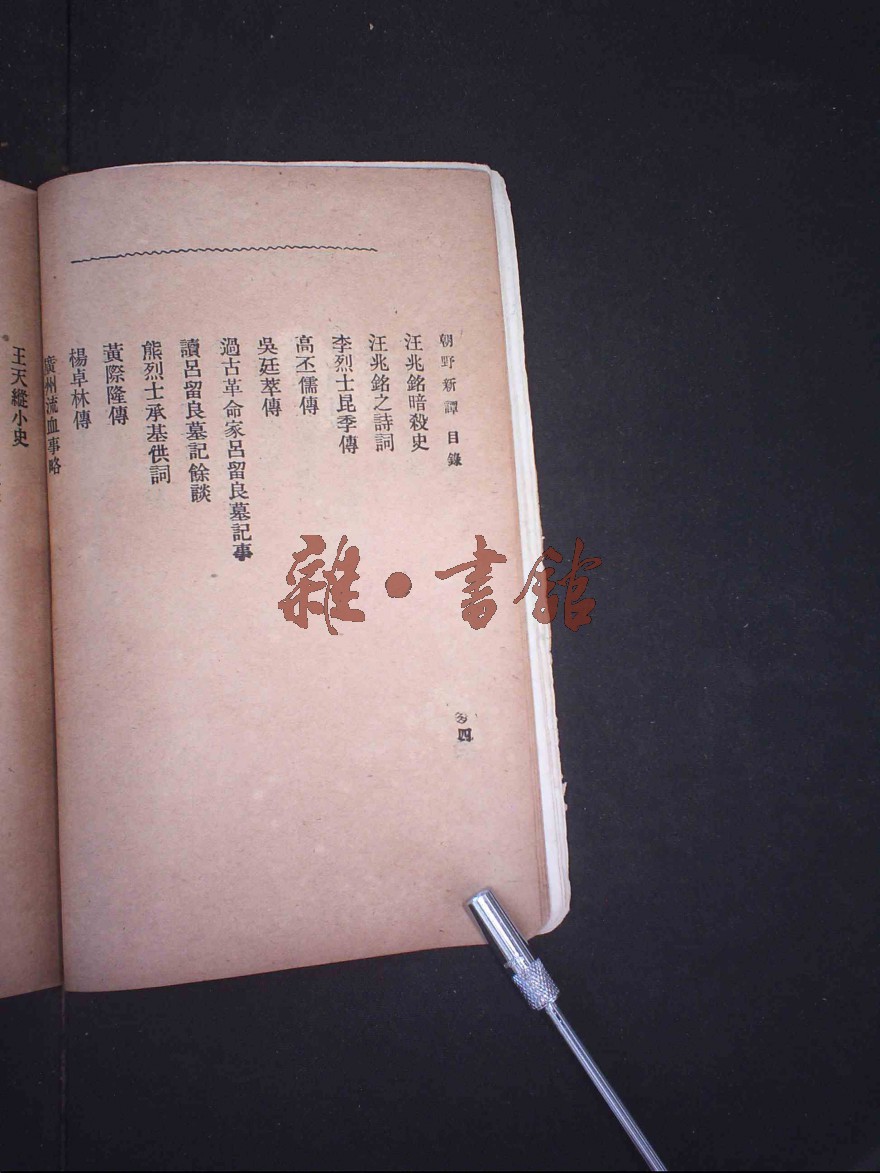 朝野新譚 目錄
汪兆銘暗殺史
汪兆銘之詩詞
李烈士昆季傳
高丕儒傳
吳廷萃傳
過古革命家呂留良墓記事
讀呂留良墓記餘談
熊烈士承基供詞
黃際隆傳
楊卓林傳
廣州流血事略
四
王天縱小史
雜·書館